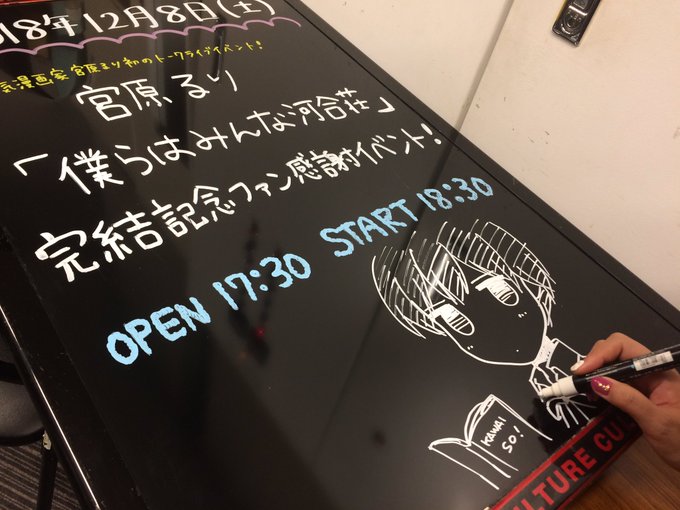 018年12月8日(土)
気漫画家宮原るり初のトークライブイベント!
宮原るり
「僕らはみんな河合荘」
完結記念ファン感謝イベント!
OPEN 17:30 START 18:30
KAWAI
SO!
LTURE CU